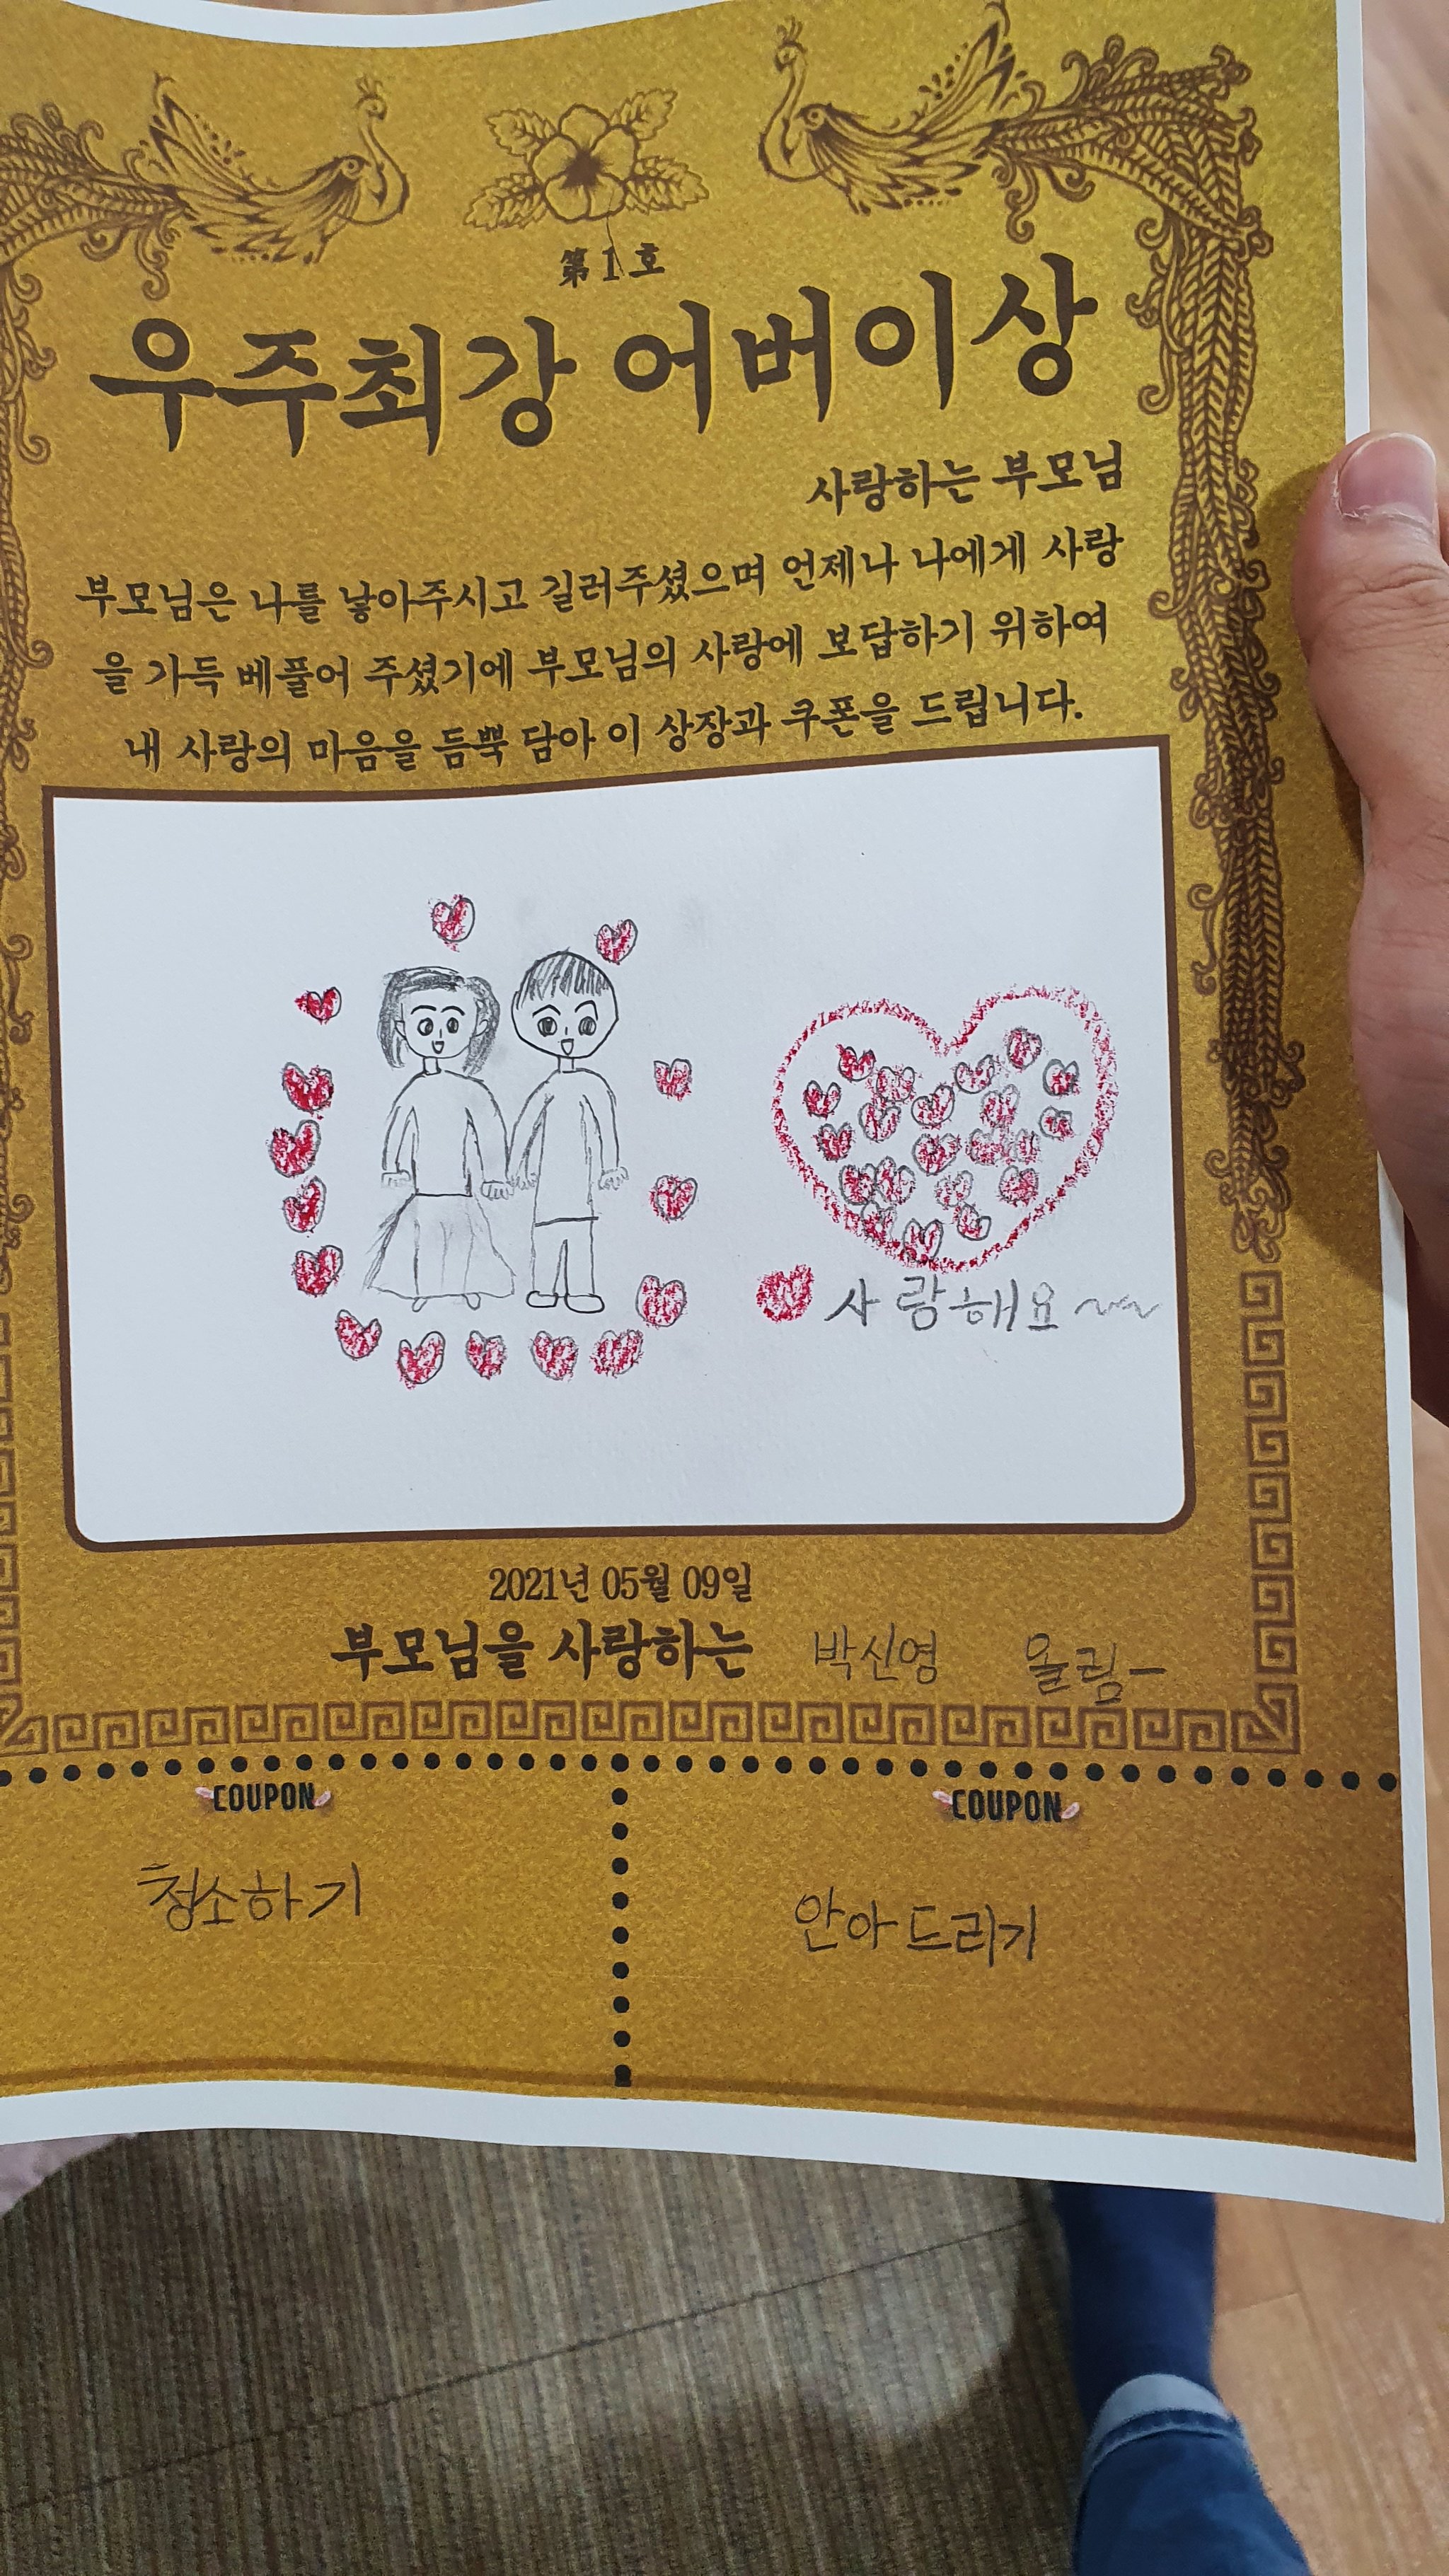 第1호
우주최강 어버이상
사랑하는 부모님
부모님은 나를 낳아주시고 길러주셨으며 언제나 나에게 사랑
을 가득 베풀어 주셨기에 부모님의 사랑에 보답하기 위하여
내 사랑의 마음을 듬뿍 담아 이 상장과 쿠폰을 드립니다.
사랑해요~~
2021년 05월 09일
부모님을 사랑하는 박신영 올림-
COUPON COUPON
청소하기 안아드리기